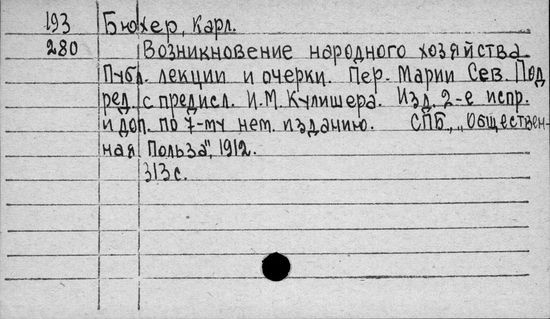 193 Бюхер, Карл.
280 Возникновение народного хозяйства
Публ. лекции и очерки. Пер. Марии Сев. Под
ред. с предисл. И.М. Кулишера. Изд. 2-е испр.
и доп. по 7-му нем. изданию. СПБ, „Обществен-
ная Польза", 1912.
313 с.